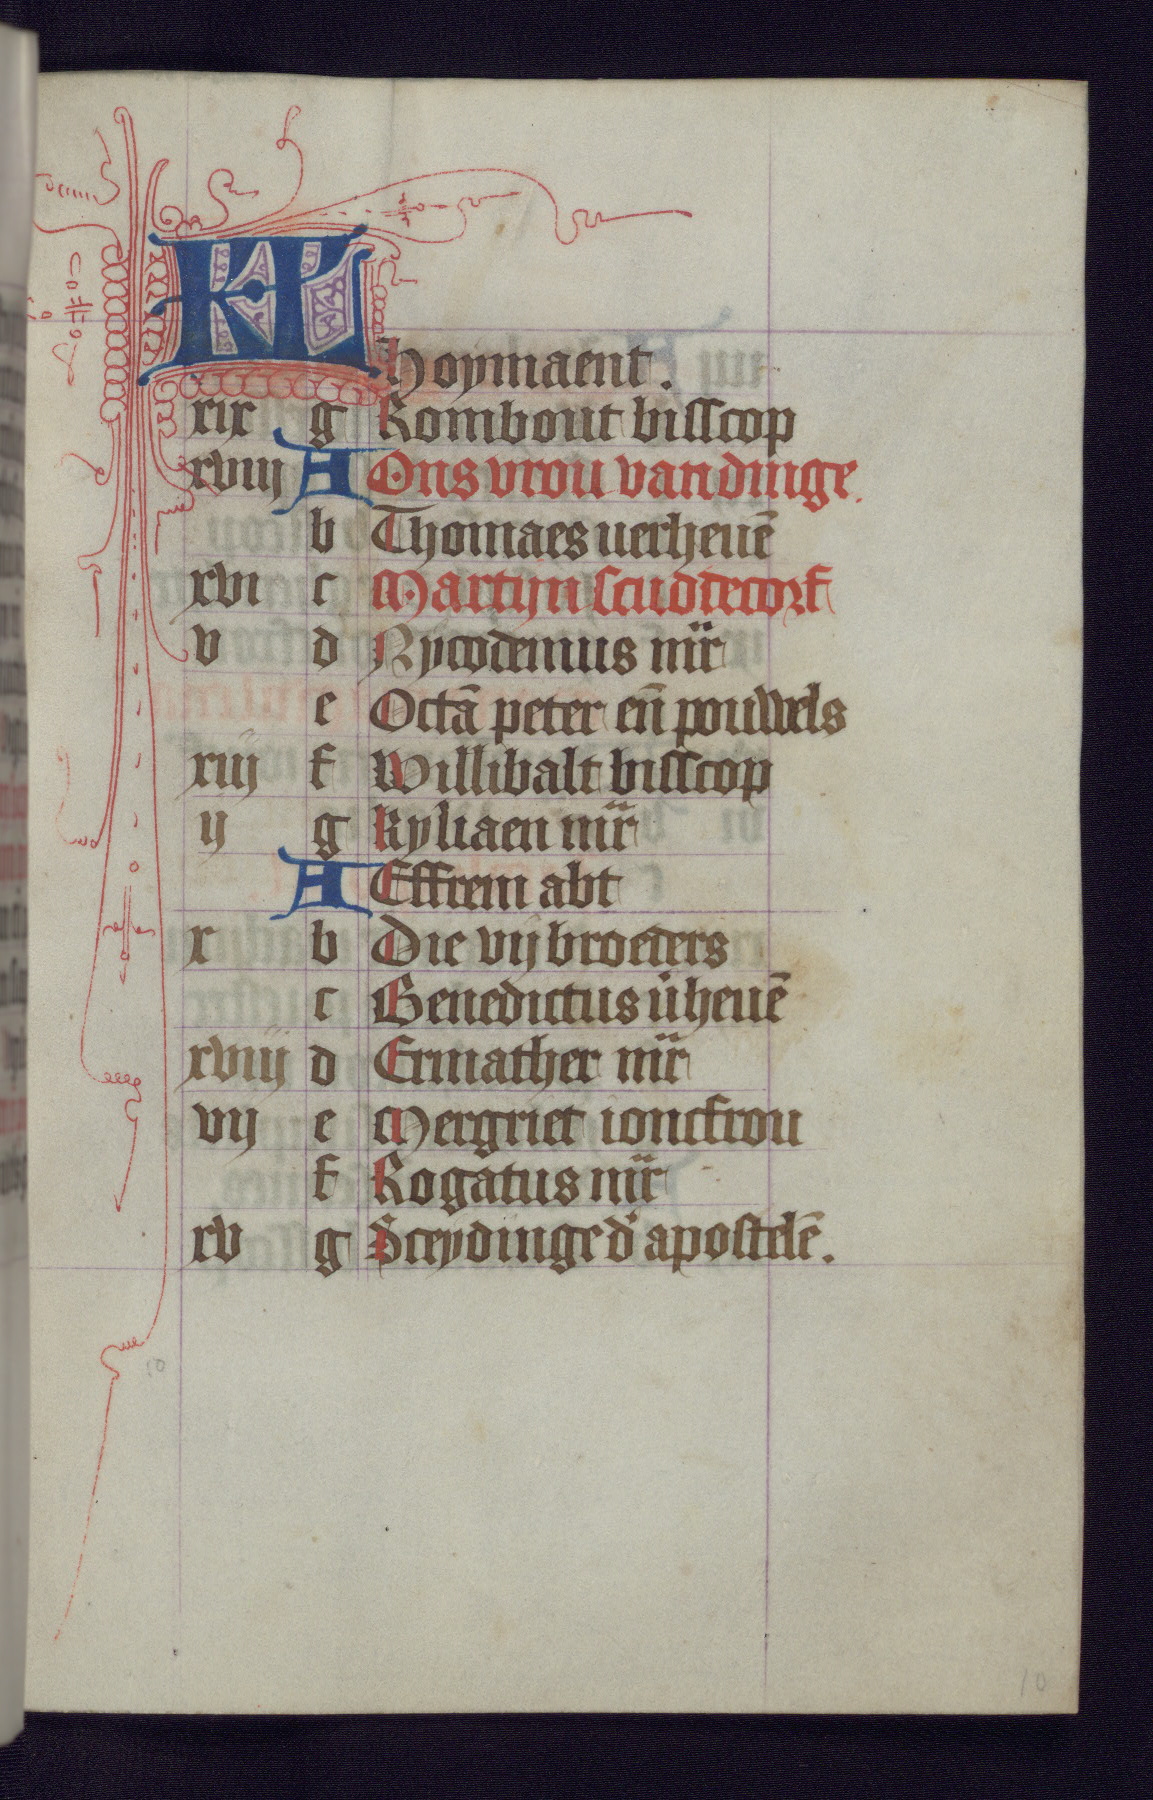 KL Hoymaent.
xix g Rombout bisscop
xviij A Ons vrou vandinge.
b Thomaes uerheuē
xvi c Martijn scuddecorf
v d Nycodemus mr̄
e Octā peter en̄ pouwels
xiij f Willibalt bisscop
ij g Kyliaen mr̄
A Effrem abt
x b Die vij broeders
c Benedictus v̄heuē
xviij d Ermather mr̄
vij e Mergriet ioncfrou
f Rogatus mr̄
xv g Sceydinge d' apostelē.
10
10